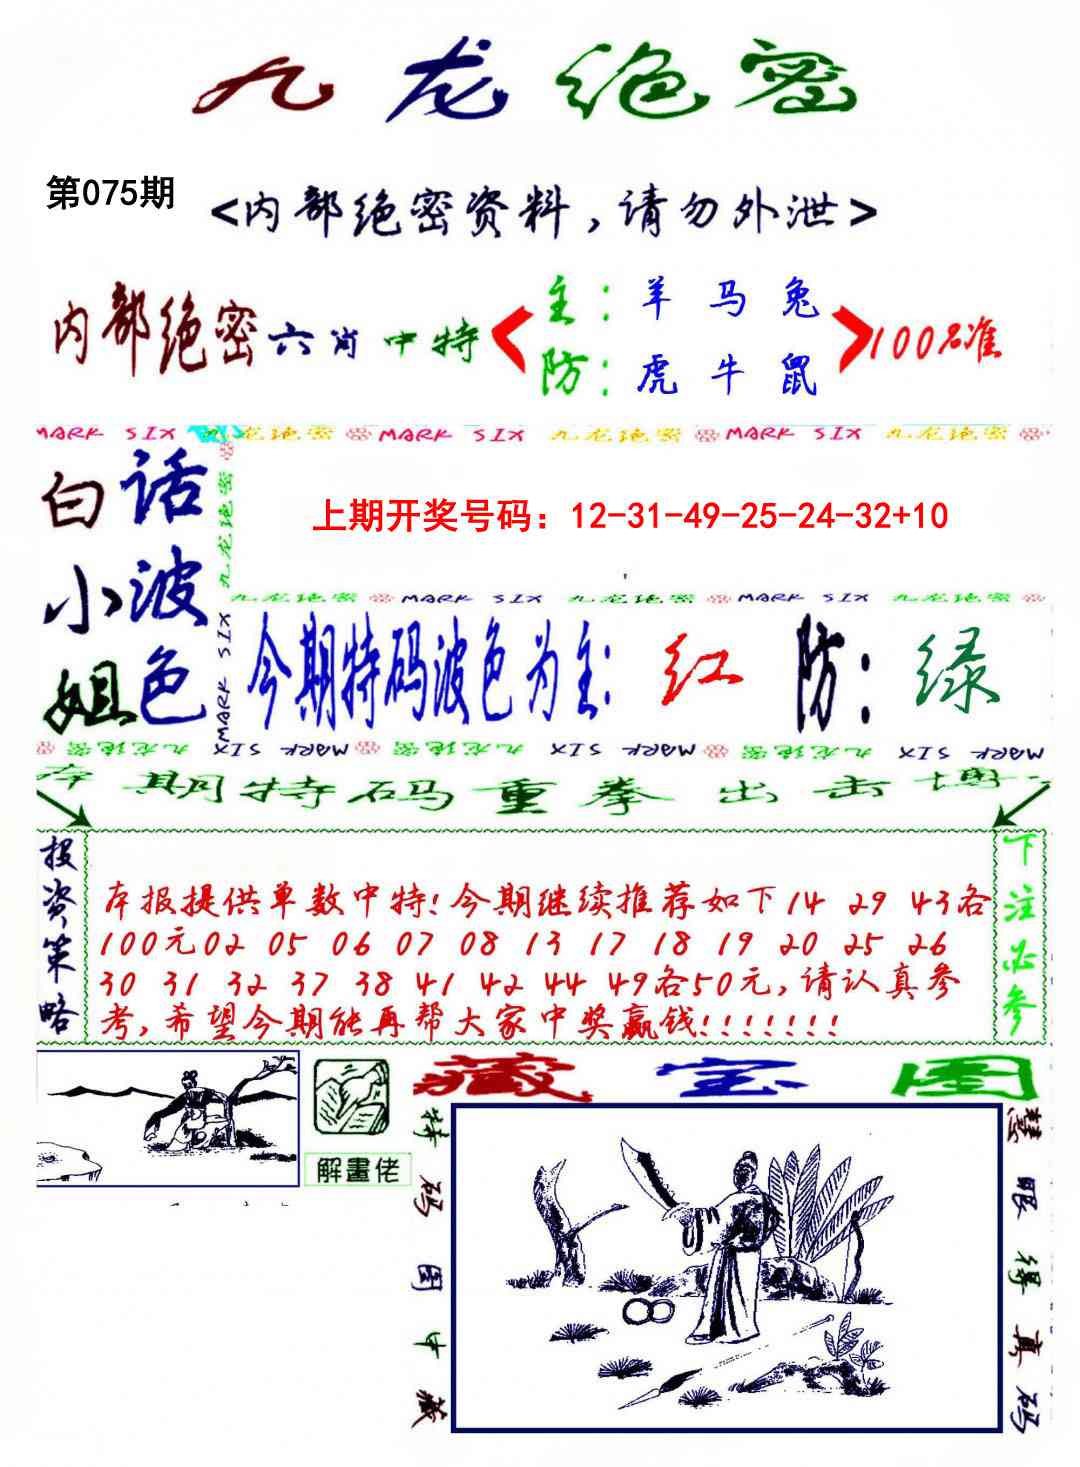 九龙绝密
第075期
<内部绝密资料,请勿外泄>
内部绝密六肖中特
主:羊 马 兔
防:虎 牛 鼠
100%准
MARK SIX 九龙绝密 MARK SIX 九龙绝密 MARK SIX 九龙绝密
白小姐
话波色
九龙绝密
MARK SIX
上期开奖号码：12-31-49-25-24-32+10
九龙绝密 MARK SIX 九龙绝密 MARK SIX 九龙绝密
今期特码波色为主:红 防:绿
九龙绝密 MARK SIX 九龙绝密 MARK SIX 九龙绝密 MARK SIX
本期特码重拳出击博
投资策略
本报提供单数中特!今期继续推荐如下14 29 43各
100元02 05 06 07 08 13 17 18 19 20 25 26
30 31 32 37 38 41 42 44 49各50元,请认真参
考,希望今期能再帮大家中奖赢钱!!!!!!!
下注必参
藏宝图
解畫佬
特码图中藏
慧眼得真码